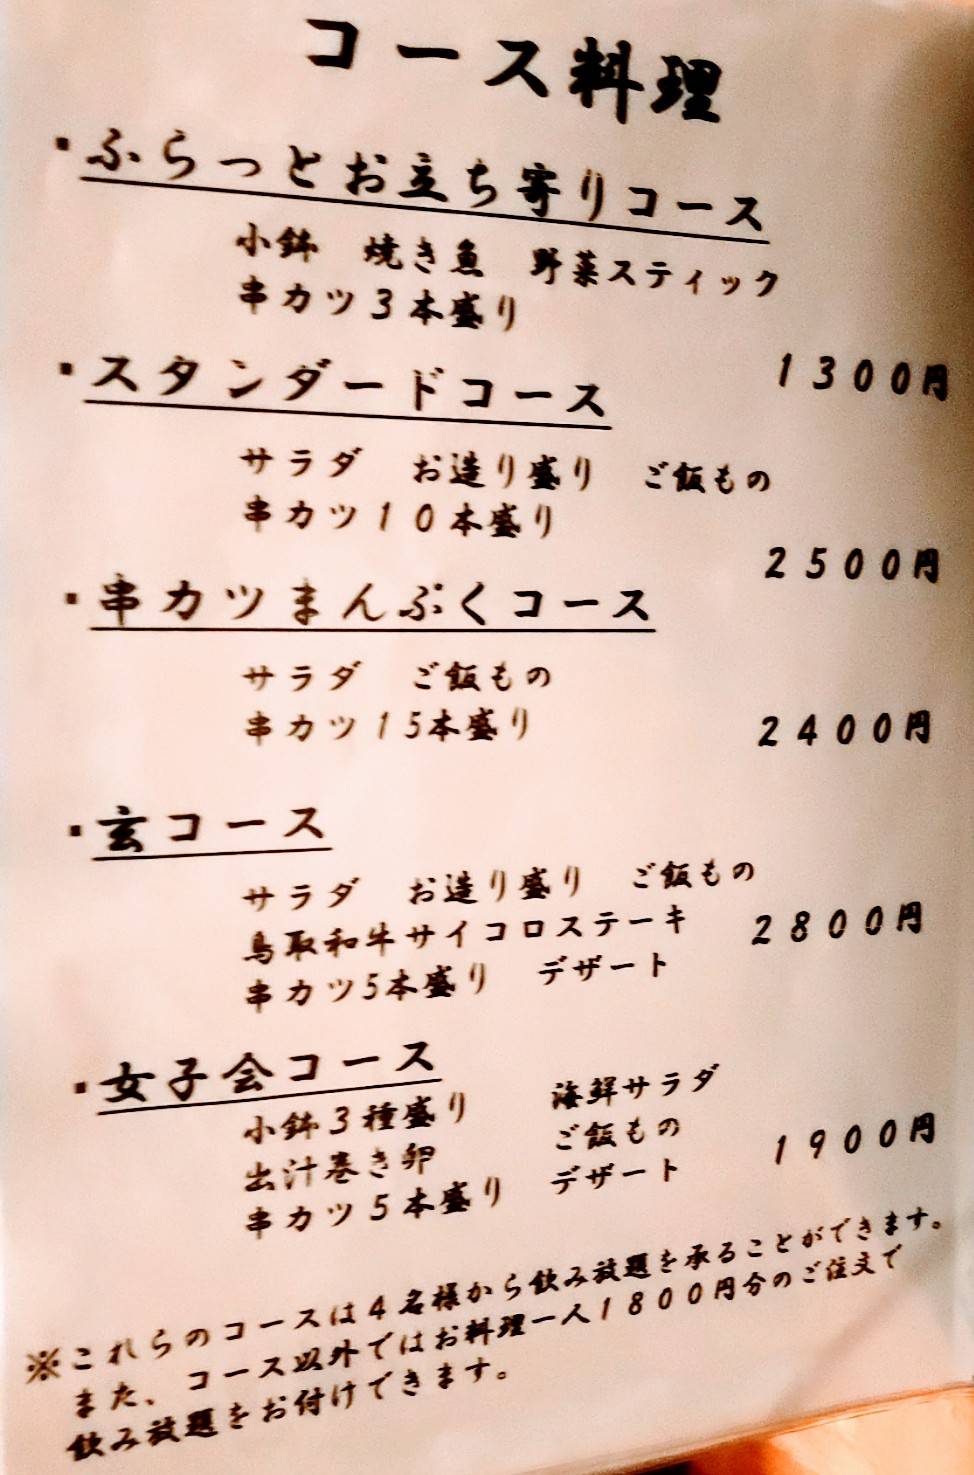 コース料理
・ふらっとお立ち寄りコース
小鉢　焼き魚　野菜スティック
串カツ３本盛り
１３００円
・スタンダードコース
サラダ　お造り盛り　ご飯もの
串カツ１０本盛り
２５００円
・串カツまんぷくコース
サラダ　ご飯もの
串カツ１５本盛り
２４００円
・玄コース
サラダ　お造り盛り　ご飯もの
鳥取和牛サイコロステーキ
２８００円
串カツ５本盛り　デザート
・女子会コース
小鉢３種盛り　海鮮サラダ
出汁巻き卵　ご飯もの
１９００円
串カツ５本盛り　デザート
※これらのコースは４名様から飲み放題を承ることができます。
また、コース以外ではお料理一人１８００円分のご注文で
飲み放題をお付けできます。